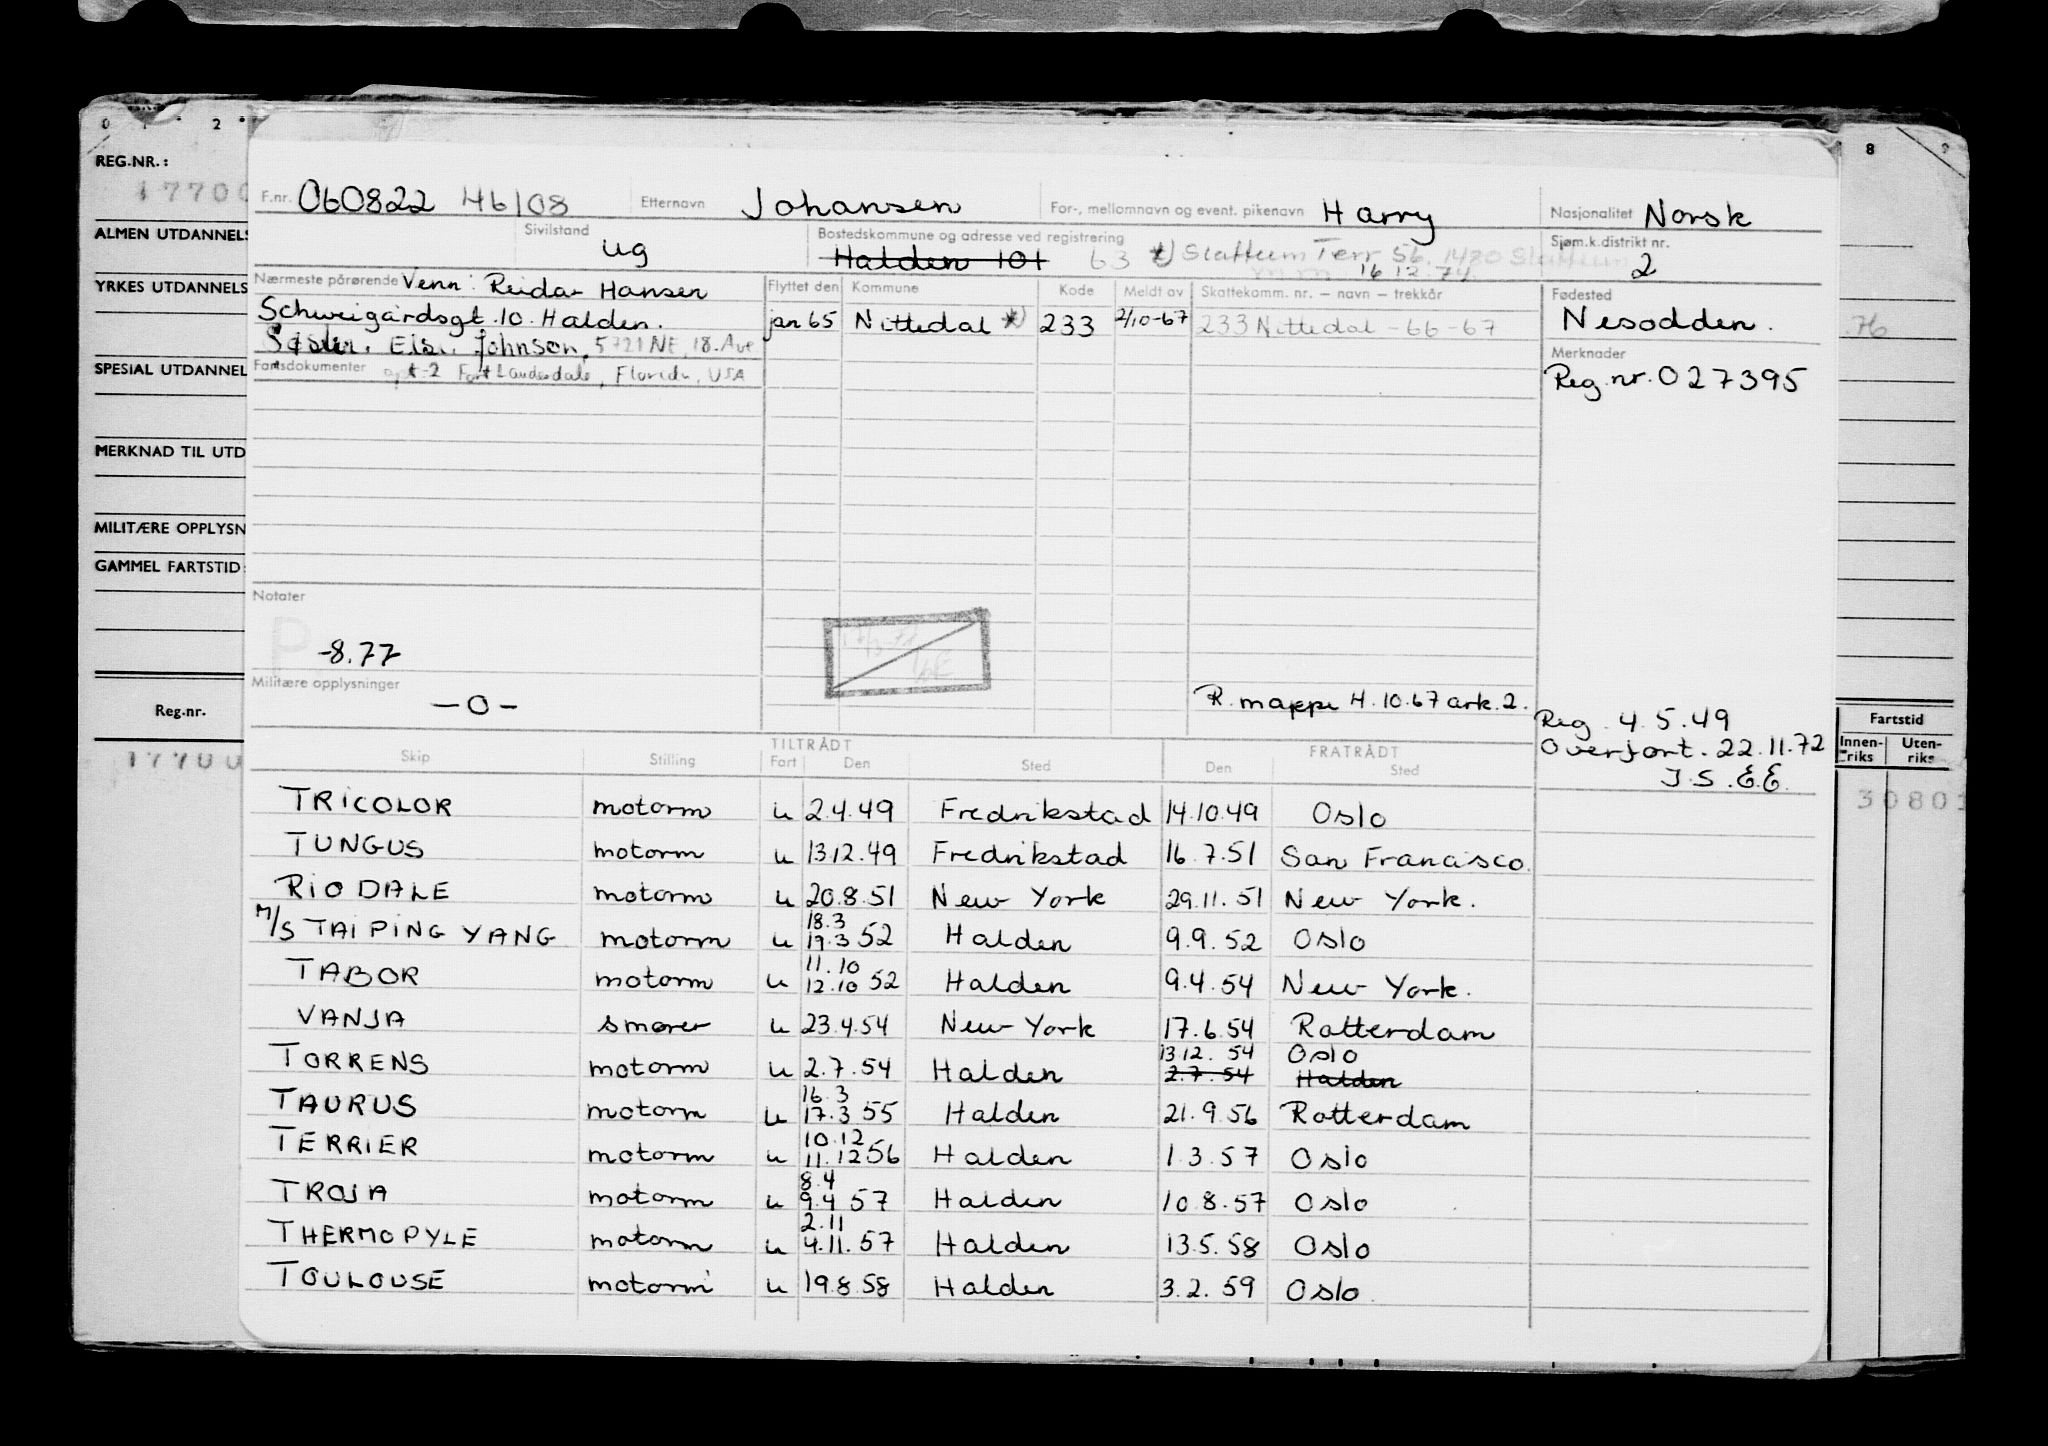 0 1 2
8 9
REG.NR.:
17700
ALMEN UTDANNELS
YRKES UTDANNELS
SPESIAL UTDANNEL
MERKNAD TIL UTD
MILITÆRE OPPLYSN
GAMMEL FARTSTID:
Reg.nr.
17700
76
Fartstid
Innen-riks Uten-riks
30801
F.nr. 060822 46108 Etternavn Johansen For-, mellomnavn og event. pikenavn Harry Nasjonalitet Norsk
Sivilstand ug Bostedskommune og adresse ved registrering Halden 101 63 *) Slattum Terr 56. 1480 Slattum Sjøm.k.distrikt nr. 2
16 12.74.
Nærmeste pårørende Venn: Reidar Hansen Flyttet den Kommune Kode Meldt av Skattekomm. nr. – navn – trekkår Fødested
Schweigårdsgt. 10. Halden. jan 65 Nittedal *) 233 2/10-67 233 Nittedal - 66 - 67 Nesodden.
Søster. Els. Johnson, 5721 NE, 18. Ave Merknader
Fartsdokumenter apt-2 Fort Lauderdale, Florida, USA Reg. nr. 027395
Notater
P -8.77
Militære opplysninger
– 0 –
R. mappe 4.10.67 ark. 2.
Reg. 4.5.49
Overført. 22.11.72
J.S.E.E.
TILTRÅDT FRATRÅDT
Skip Stilling Fart Den Sted Den Sted
TRICOLOR motorm u 2.4.49 Fredrikstad 14.10.49 Oslo
TUNGUS motorm u 13.12.49 Fredrikstad 16.7.51 San Francisco.
RIO DALE motorm u 20.8.51 New York 29.11.51 New York.
18.3
M/S TAI PING YANG motorm u 19.3 52 Halden 9.9.52 Oslo
11.10
TABOR motorm u 12.10 52 Halden 9.4.54 New York.
VANJA smører u 23.4.54 New York 17.6.54 Rotterdam
13.12.54 Oslo
TORRENS motorm u 2.7.54 Halden 2.7.54 Halden
16.3
TAURUS motorm u 17.3 55 Halden 21.9.56 Rotterdam
10.12
TERRIER motorm u 11.12 56 Halden 1.3.57 Oslo
8.4
TROJA motorm u 9.4 57 Halden 10.8.57 Oslo
2.11
THERMOPYLE motorm u 4.11.57 Halden 13.5.58 Oslo
TOULOUSE motorm u 19.8.58 Halden 3.2.59 Oslo.